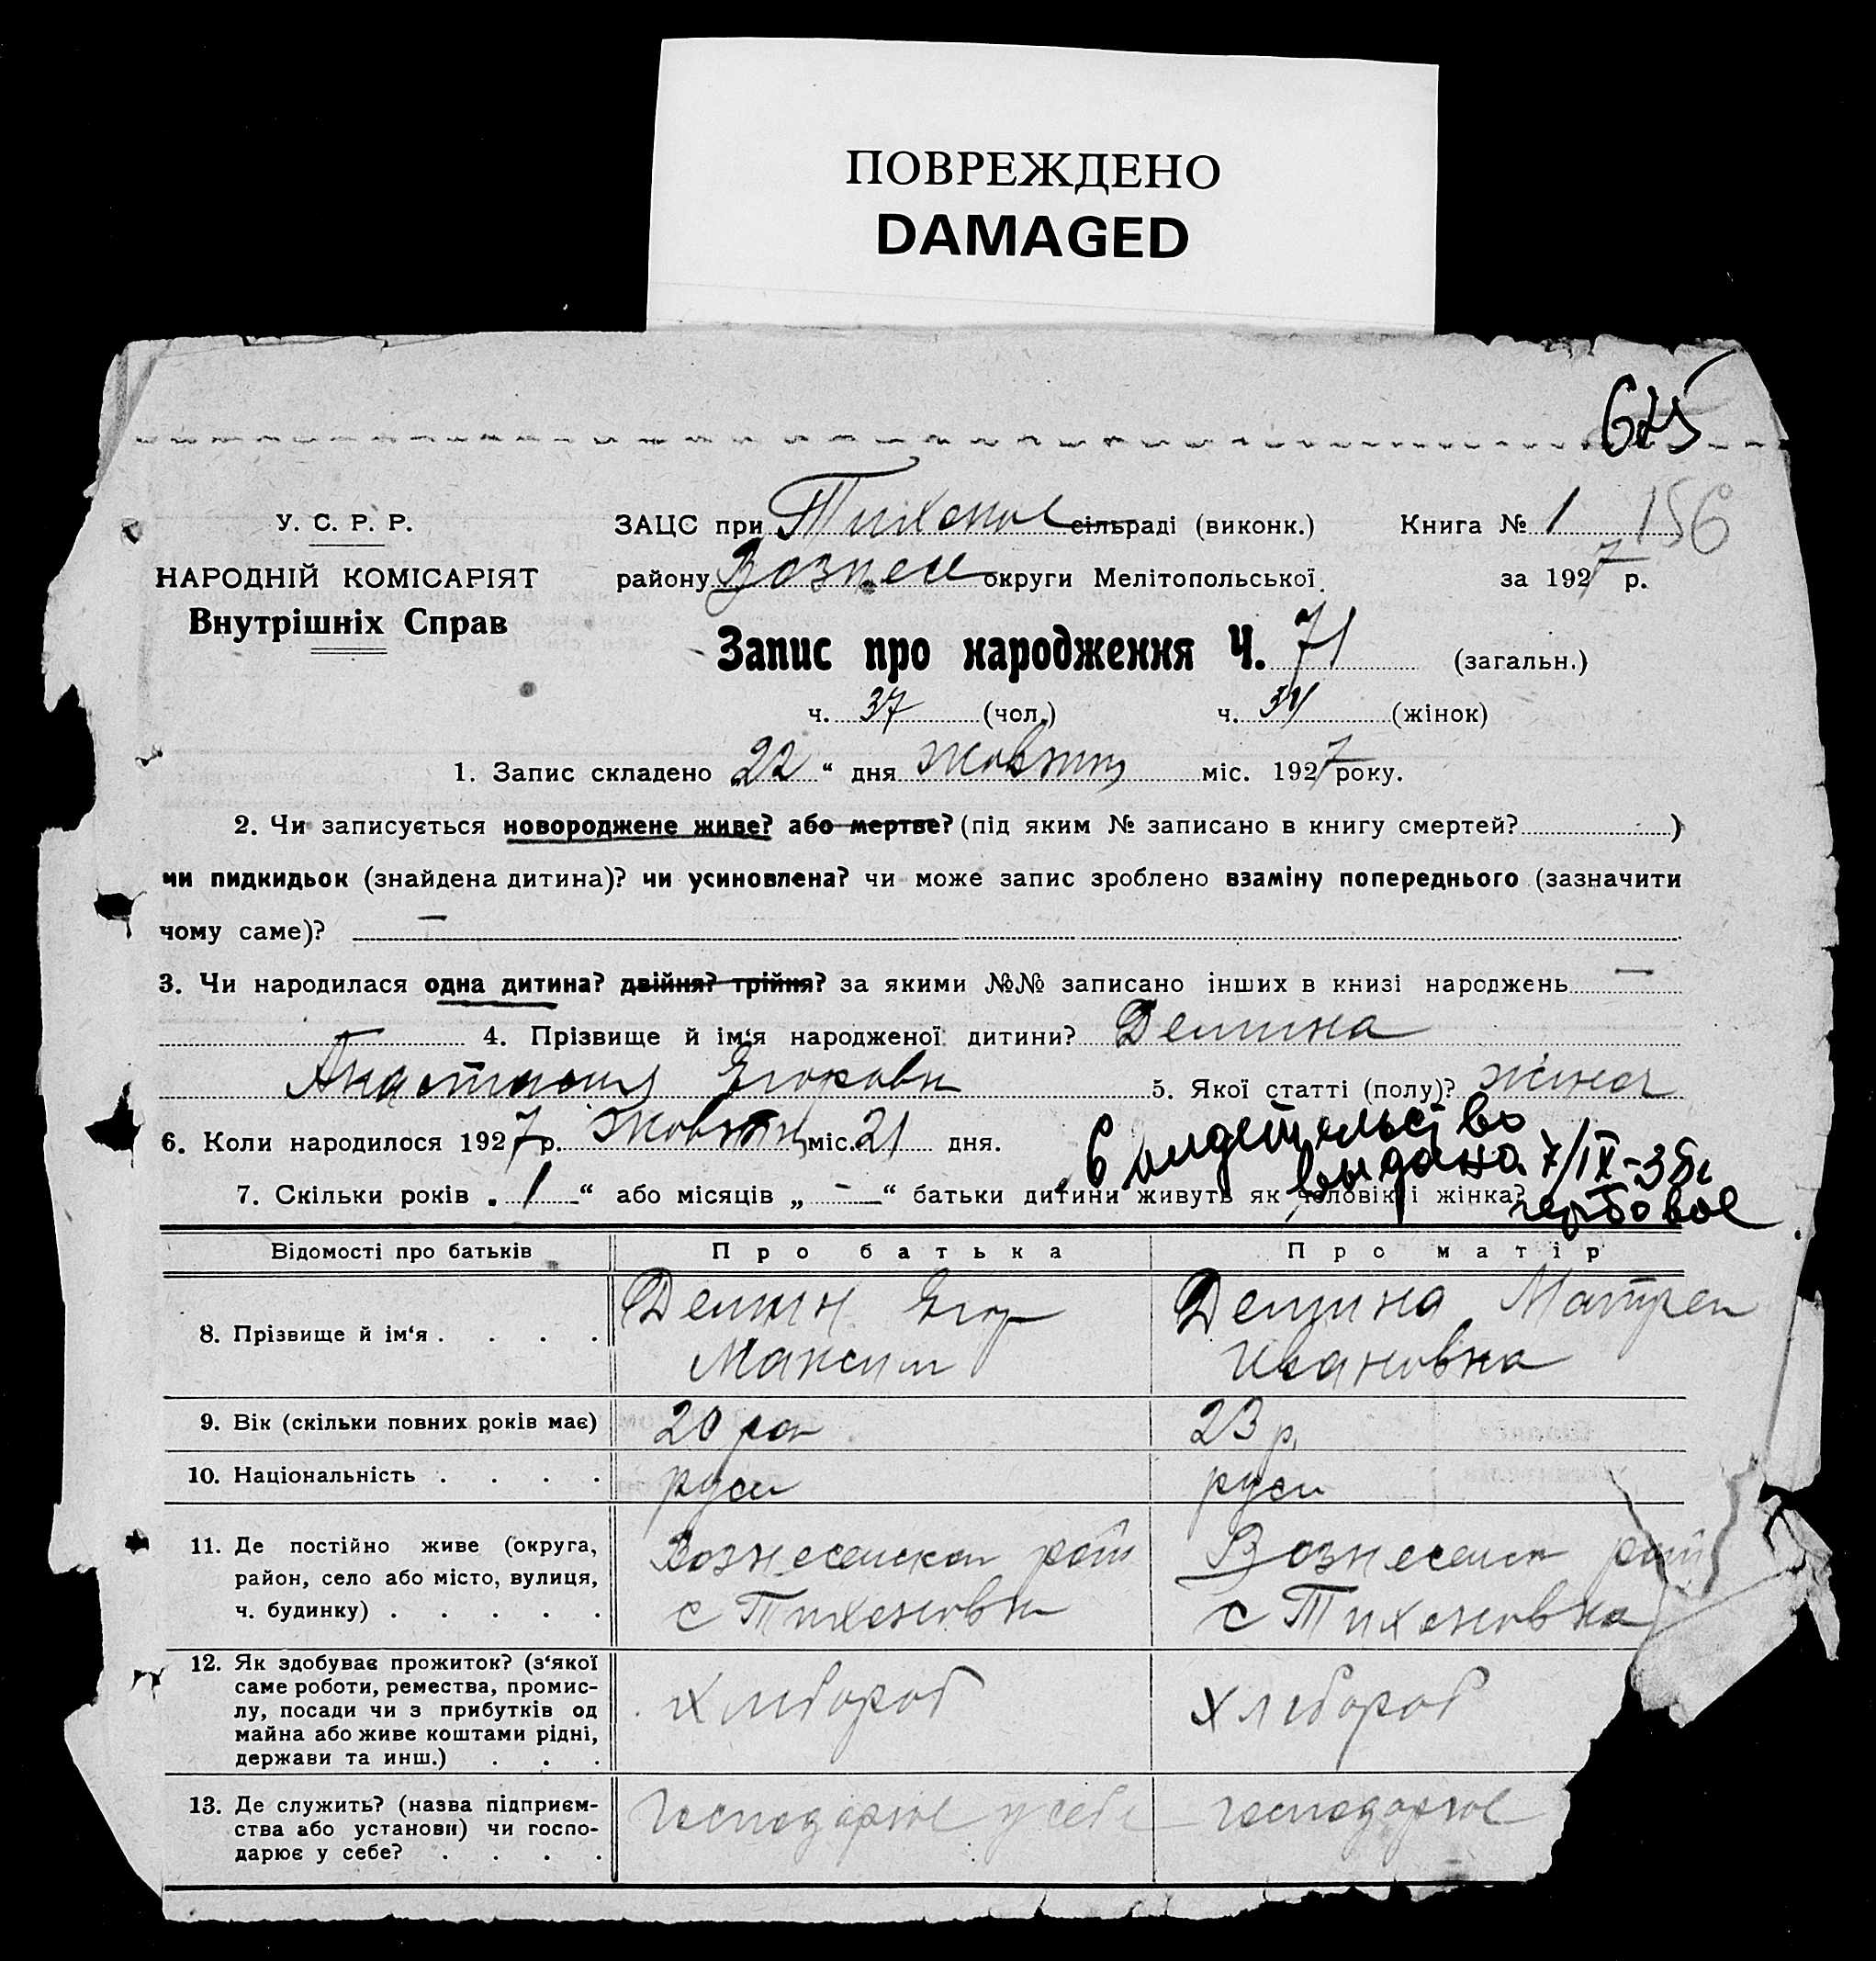 ПОВРЕЖДЕНО
DAMAGED
У. С. Р. Р.
НАРОДНІЙ КОМІСАРІЯТ
Внутрішніх Справ
ЗАЦС при Тихонов сільраді (виконк.) Книга № 1 156
району Вознесе округи Мелітопольської за 1927 р.
Запис про народження Ч. 71 (загальн.)
ч. 37 (чол.) ч. 34 (жінок)
1. Запис складено „22“ дня жовтня міс. 1927 року.
2. Чи записується новороджене живе? або мертве? (під яким № записано в книгу смертей? )
чи пидкидьок (знайдена дитина)? чи усиновлена? чи може запис зроблено взаміну попереднього (зазначити
чому саме)? —
3. Чи народилася одна дитина? двійня? трійня? за якими №№ записано інших в книзі народжень —
4. Прізвище й ім‘я народженої дитини? Демина
Анастасия Егоровн 5. Якої статті (полу)? жіноч
6. Коли народилося 1927 р. жовтня міс. 21 дня.
Свидетельство
выдано 7/IX-35г
гербовое
7. Скільки років „ 1 “ або місяців „ - “ батьки дитини живуть як чоловік і жінка?
Відомості про батьків Про батька Про матір
8. Прізвище й ім‘я . . . .
Демин Егор
Максим
Демина Матрен
Ивановна
9. Вік (скільки повних років має) 20 ро 23 р
10. Національність . . . . руси руси
11. Де постійно живе (округа,
район, село або місто, вулиця,
ч. будинку) . . . . .
Вознесенска
с Тихоновка
Вознесенск
с Тихоновка
12. Як здобуває прожиток? (з‘якої
саме роботи, ремества, промис-
лу, посади чи з прибутків од
майна або живе коштами рідні,
держави та инш.) . . .
хлебороб
хлебороб
13. Де служить? (назва підприєм-
ства або установи) чи госпо-
дарює у себе? . . . .
Господарює у себе
господарює